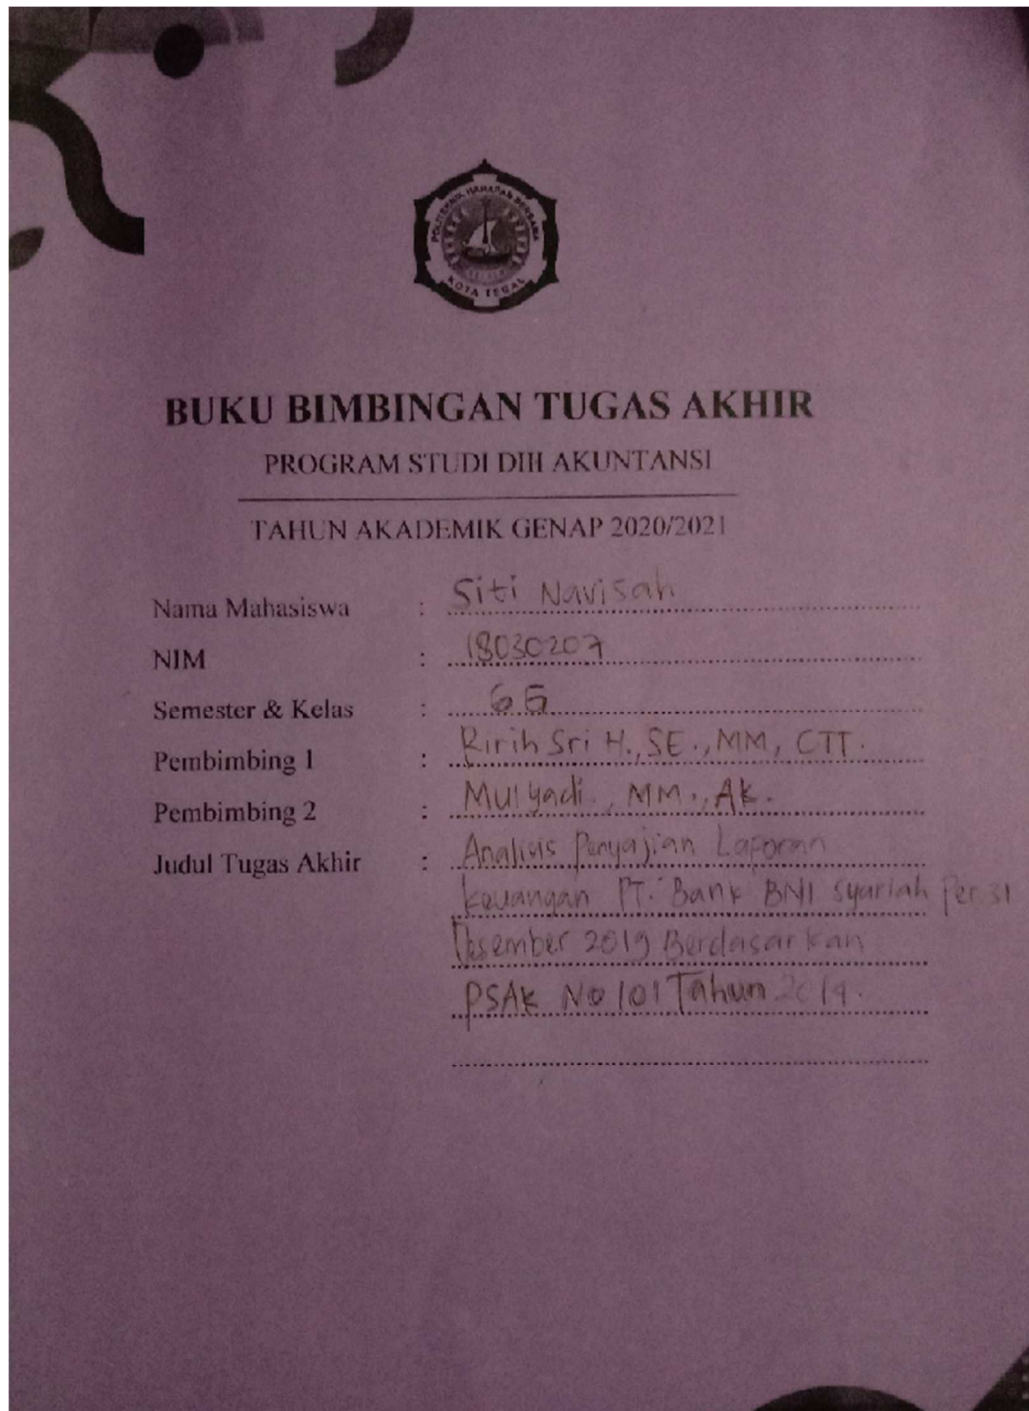 POLITEKNIK HARAPAN BERSAMA
KOTA TEGAL
BUKU BIMBINGAN TUGAS AKHIR
PROGRAM STUDI DIII AKUNTANSI
TAHUN AKADEMIK GENAP 2020/2021
Nama Mahasiswa : Siti Navisah
NIM : 18030207
Semester & Kelas : 6
Pembimbing 1 : Ririh Sri H., SE., MM, CTT.
Pembimbing 2 : Mulyadi., MM., Ak.
Judul Tugas Akhir : Analisis Penyajian Laporan
keuangan PT. Bank BNI Syariah Per 31
Desember 2019 Berdasarkan
PSAK No 101 Tahun